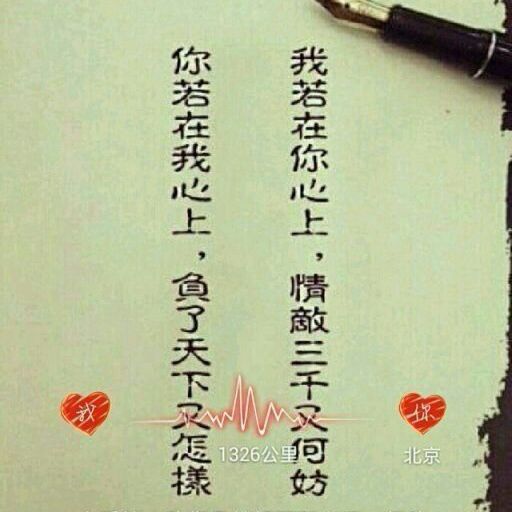 我若在你心上，情敵三千又何妨
你若在我心上，負了天下又怎樣
我
你
1326公里
北京